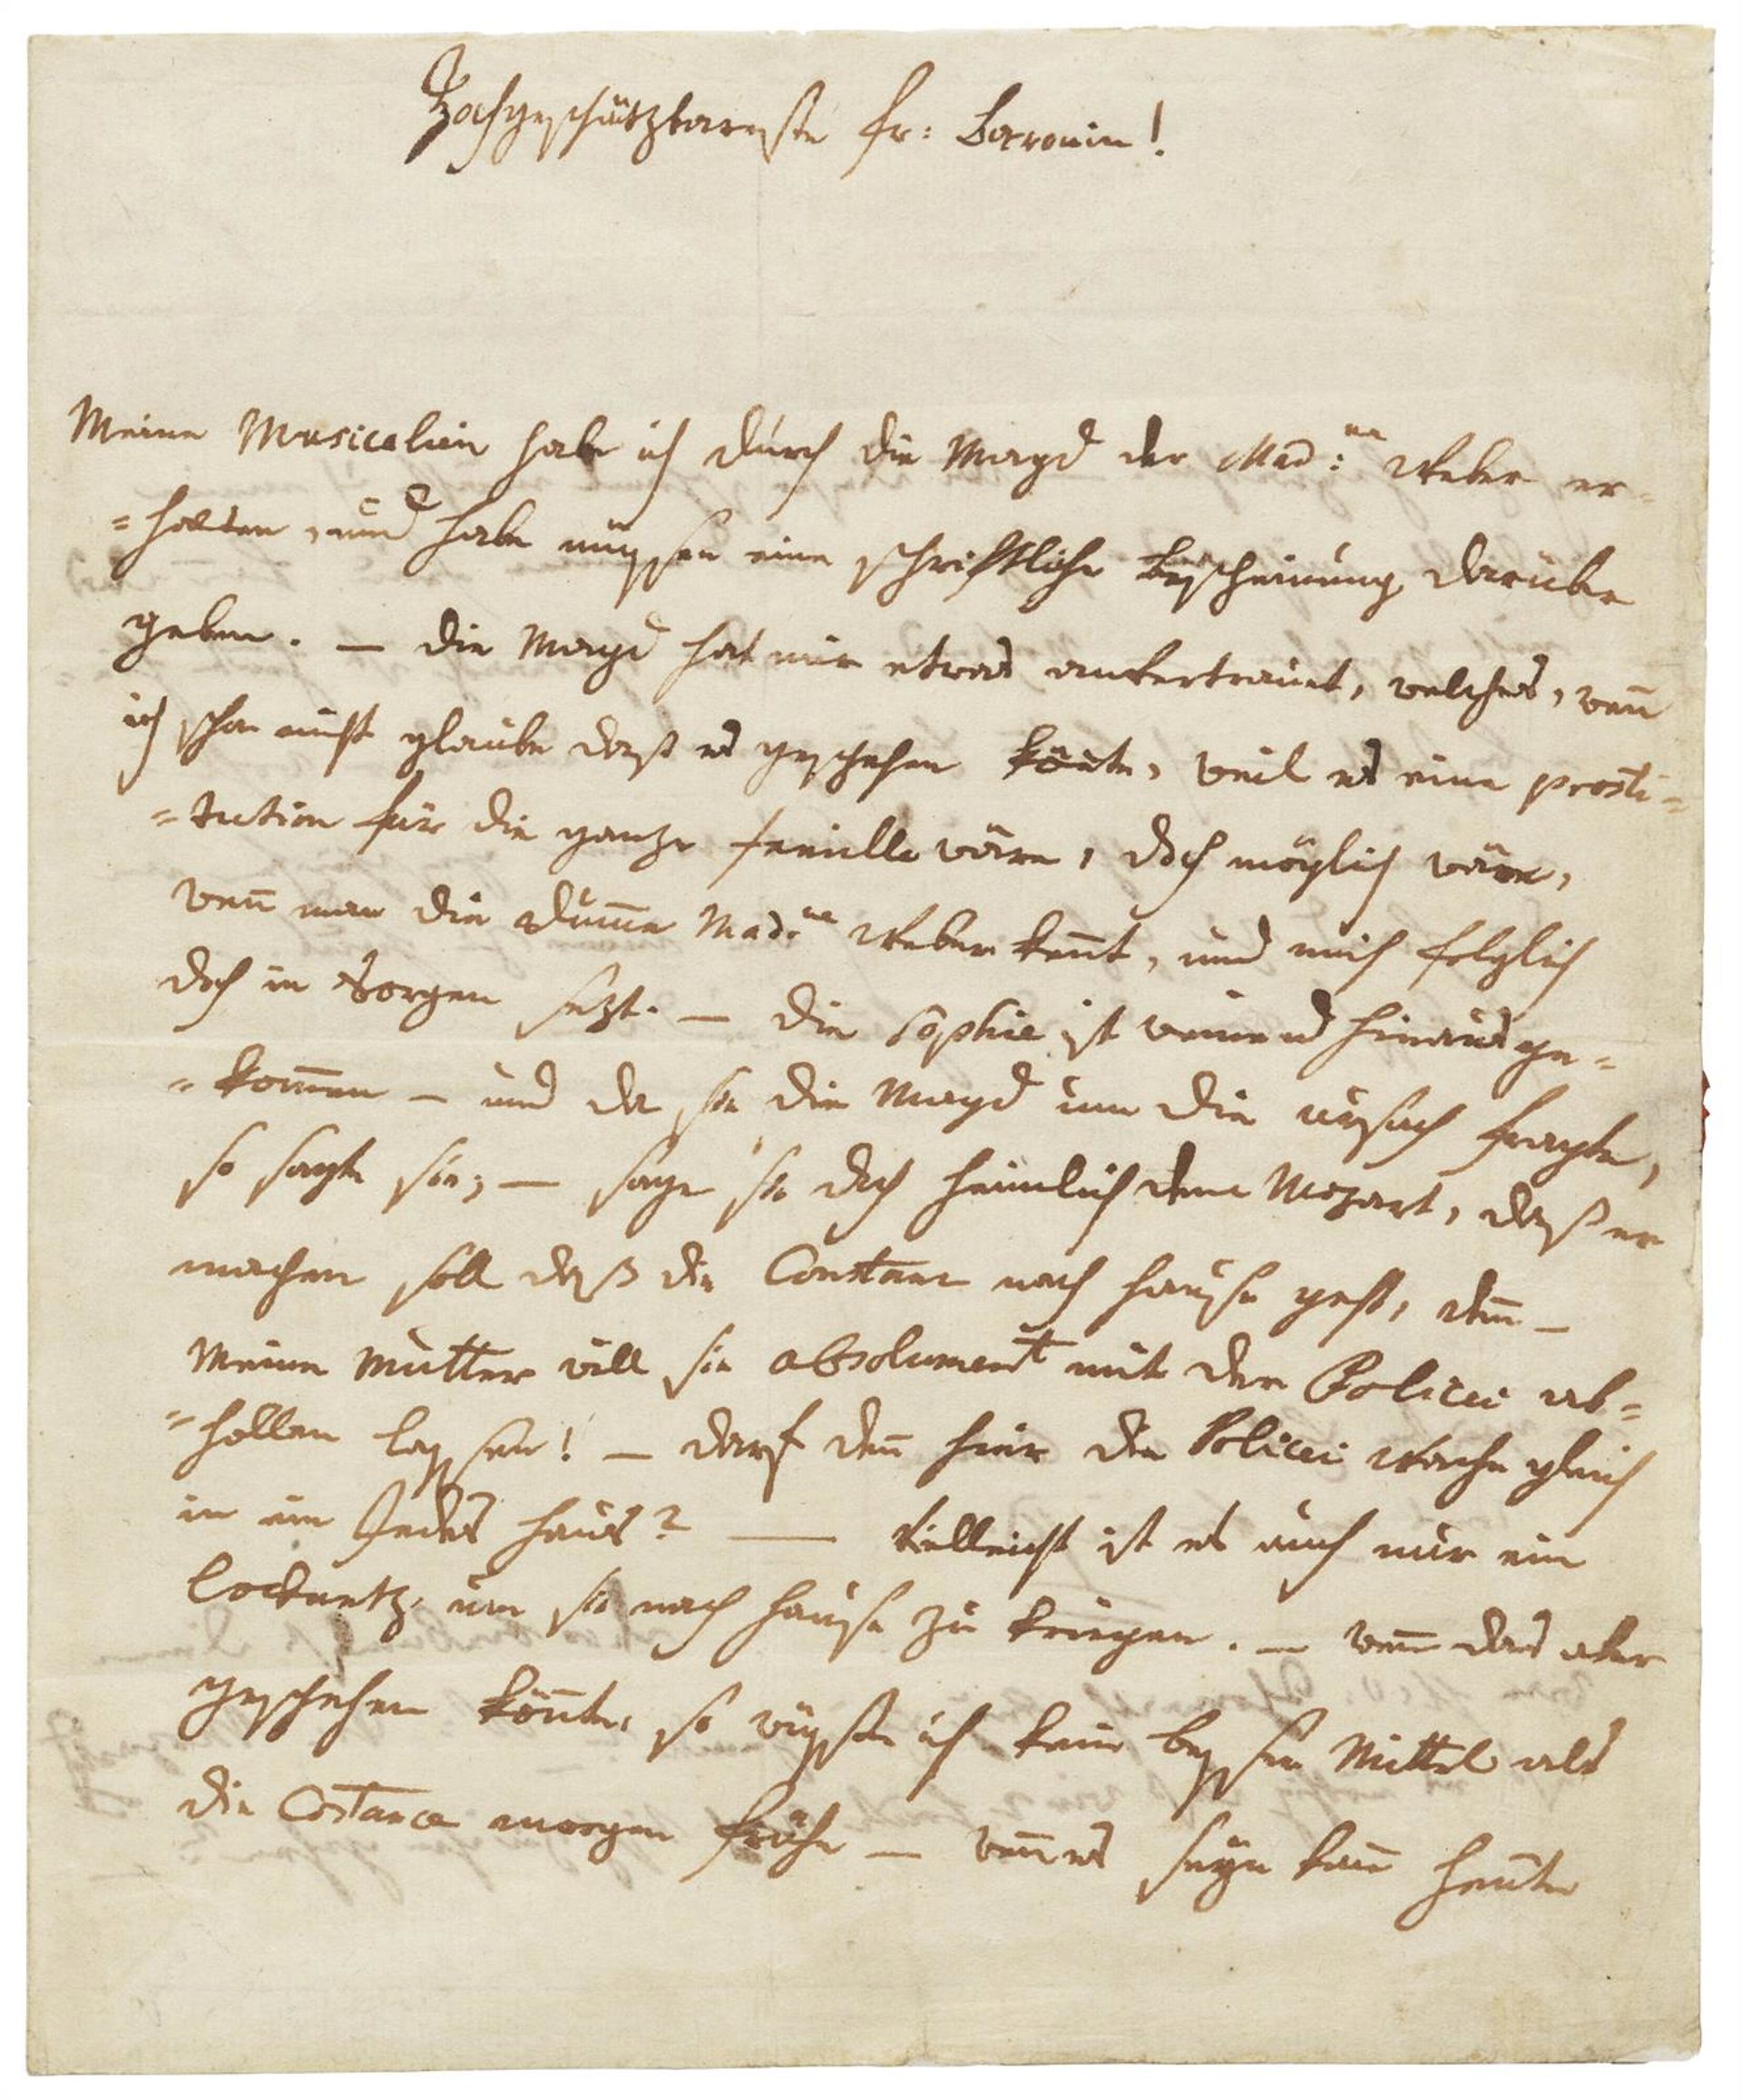 Hochgeschätzbareste fr: Baronin!
Meine Musicalien habe ich durch die Magd der Mad:me Weber er=
=halten, und habe müssen eine schriftliche bescheinung darüber
geben. — die Magd hat mir etwas anvertrauet, welches, wen̄
ich schon nicht glaube daß es geschehen kön̄te, weil es eine prosti=
=tution für die ganze familie wäre, doch möglich wäre,
wen̄ man die dum̄e Mad:me Weber ken̄t, und mich folglich
doch in Sorgen sezt. — die Sophie ist weinend hinausge=
=kom̄en — und da sie die Magd um die ursach fragte,
so sagte sie; — sage sie doch heimlich dem Mozart, daß er
machen soll daß die Constanz nach hause geht, den̄ —
Meine Mutter will sie absolument mit der Policei ab=
=hollen lassen! — darf den̄ hier die Policei Wache gleich
in ein Jedes haus? — Vielleicht ist es auch nur ein
locknetz, um sie nach hause zu kriegen. — wen̄ das aber
geschehen kön̄te, so wüsste ich kein besser Mittel als
die Costance morgen frühe — wen̄ es seyn kan̄ heute